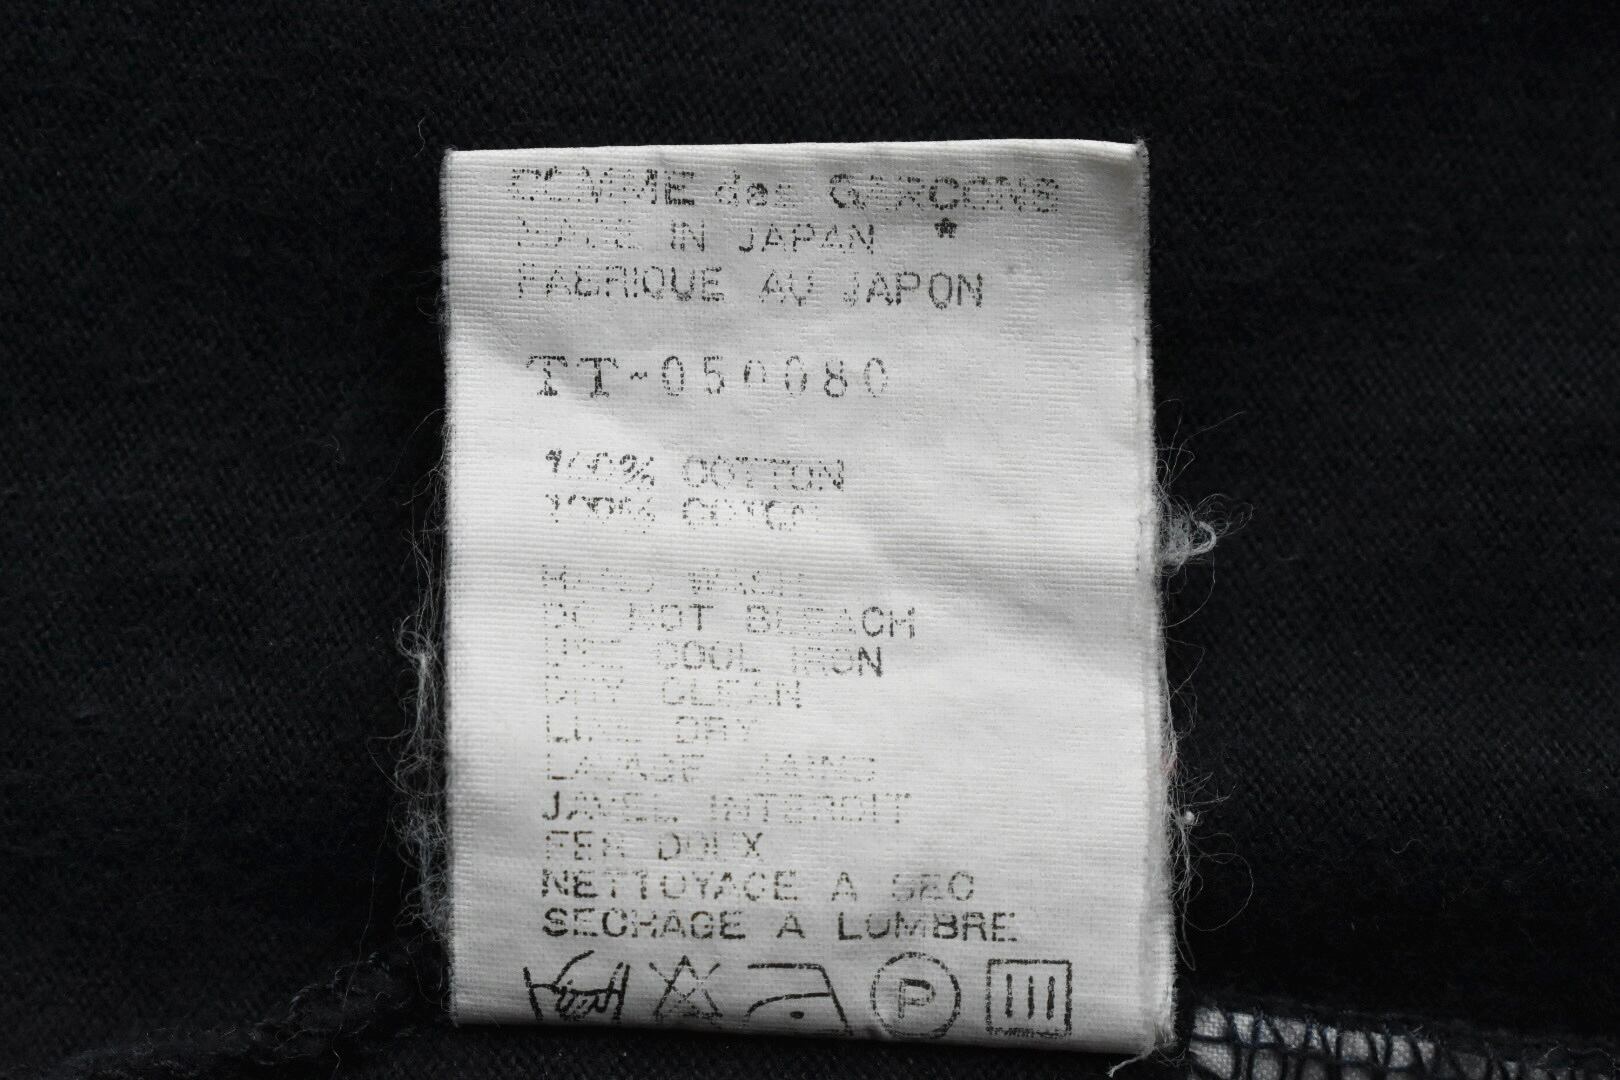 COMME des GARCONS
MADE IN JAPAN *
FABRIQUE AU JAPON
TT-050080
100% COTTON
100% COTON
HAND WASH
DO NOT BLEACH
USE COOL IRON
DRY CLEAN
LINE DRY
LAVAGE MAINS
JAVEL INTERDIT
FER DOUX
NETTOYAGE A SEC
SECHAGE A LOMBRE
P